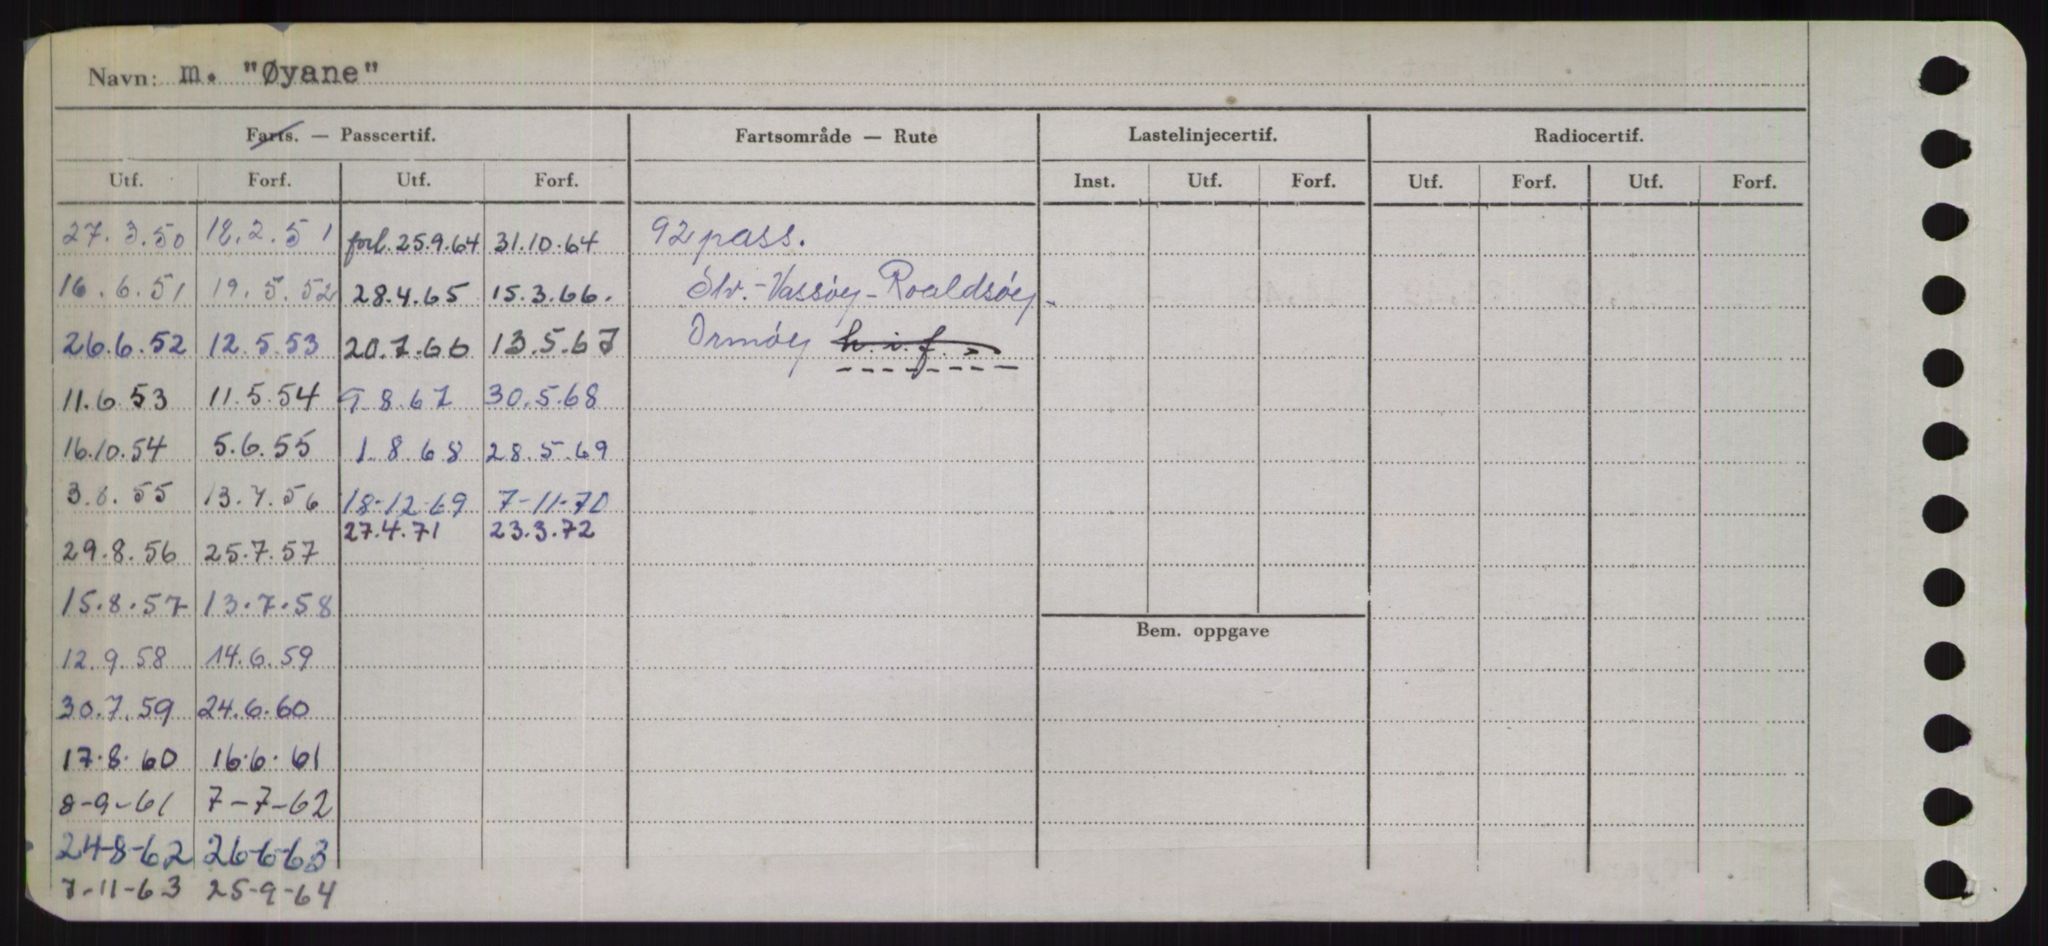 Navn: m. "Øyane"
Farts. — Passcertif. Fartsområde — Rute Lastelinjecertif. Radiocertif.
Utf. Forf. Utf. Forf. Inst. Utf. Forf. Utf. Forf. Utf. Forf.
27.3.50 18.2.51 forl. 25.9.64 31.10.64 92 pass.
16.6.51 19.5.52 28.4.65 15.3.66. Stv.-Vassøy-Roaldsøy-
26.6.52 12.5.53 20.7.66 13.5.67 Ormøy h.i.f.
11.6.53 11.5.54 9.8.67 30.5.68
16.10.54 5.6.55 1.8.68 28.5.69
3.8.55 13.7.56 18-12-69 7-11-70
27.4.71 23.3.72
29.8.56 25.7.57
15.8.57 13.7.58
Bem. oppgave
12.9.58 14.6.59
30.7.59 24.6.60
17.8.60 16.6.61
8-9-61 7-7-62
24-8-62 26-6-63
7-11-63 25-9-64